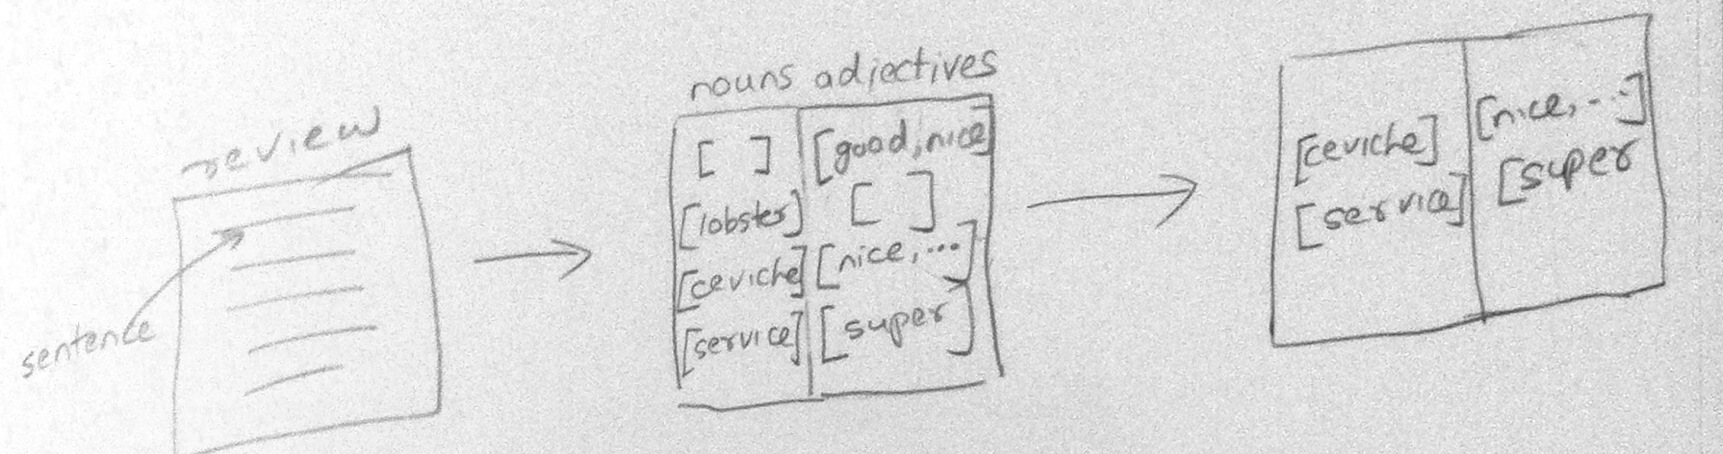 review
sentence
nouns adjectives
[ ] [good, nice]
[lobster] [ ]
[ceviche] [nice, ...]
[service] [super]
[ceviche] [nice, ...]
[service] [super